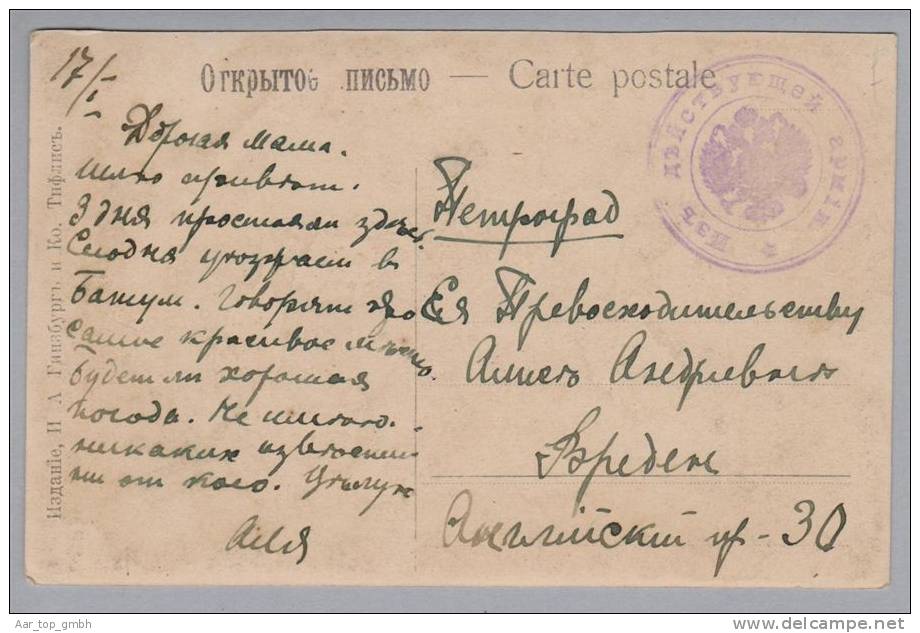 17/I
Открытое письмо — Carte postale
ИЗЪ ДѢЙСТВУЮЩЕЙ АРМІИ
Дорогая мама.
Шлю приветъ.
3 дня простояли здѣсь.
Сегодня уезжаем в
Батум. Говорят это
самое красивое место.
Будет ли хорошая
погода. Не имею
никаких известий
ни от кого. Целую
Аля
Петроград
Ея Превосходительству
Алисѣ Андреевнѣ
Вреден
Английскій пр - 30
Изданіе, И А Гинзбургъ и Ко. Тифлисъ.
Aar_top_gmbh
www.delcampe.net